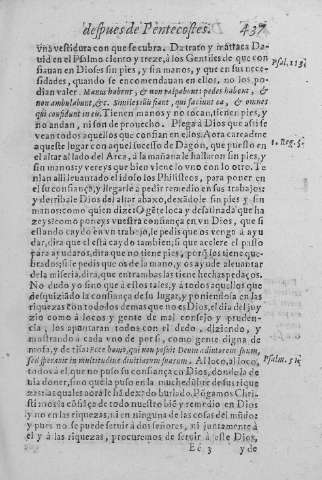 despues de Pentecostes. 437
vna vestidura con que se cubra. Da trato y mattaca Da-
uid en el Psalmo ciento y treze, à los Gentiles de que con Psal. 113.
fiauan en Dioses sin pies, y sin manos, y que en sus nece-
sidades, quando se encomendauan en ellos, no los po-
dian valer. Manus habent, & non palpabunt: pedes habent, &
non ambulabunt, &c. Similes illis fiant, qui faciunt ea, & omnes
qui confidunt in eis. Tienen manos y no tocan, tienen pies, y
no andan, ni son de prouecho. Plega à Dios que assi se
vean todos aquellos que confian en ellos. Aora careadme
aqueste lugar con aquel sucesso de Dagon, que puesto en 1. Reg. 5.
el altar al lado del Arca, à la mañana le hallaron sin pies, y
sin manos: y vereys que bien viene lo vno con lo otro. Te
nian alli leuantado el idolo los Philisteos, para poner en
el su confiança, y llegarle à pedir remedio en sus trabajos:
y derribale Dios del altar abaxo, dexadole sin pies y sin
manos: como quien dize: O gẽte loca y desatinada que ha
zeys? como poneys vuestra confiança en vn Dios, que si
estando caydo en vn trabajo, le pedis que os venga à ayu
dar, dira que el està caydo tambien; si que acelere el passo
para ayudaros, dira que no tiene pies, porq̃ los tiene que-
brados; si le pedis que os de la mano, y os ayude a leuantar
de la miseria, dira que entrambas las tiene hechas pedaços.
No dudo yo sino que à estos tales, y à todos aquellos que
desquiziado la confiança de su lugar, y poniendola en las
riquezas con todo lo demas que no es Dios, el dia del juy
zio como à locos y gente de mal consejo y pruden-
cia, los apuntaran todos con el dedo, diziendo, y
mostrando à cada vno de persi, como gente digna de
mofa, y de risa: Ecce homo, qui non posuit Deum adiutorem suum,
sed sperauit in multitudine diuitiarum suarum. Al loco, al loco, Psalm. 51.
todos a el que no puso su confiança en Dios, donde la de
bia poner, sino que la puso en la muchedũbre de sus rique
zas: las quales aora le hã dexado burlado. Põgamos Chri-
stianos la cõfiãça de todo nuestro biẽ y remedio en Dios
y no en las riquezas, ni en ninguna de las cosas del mũdo:
y pues no se puede seruir à dos señores, ni juntamente à
el y à las riquezas, procuremos de seruir à este Dios,
Ee 3 y de